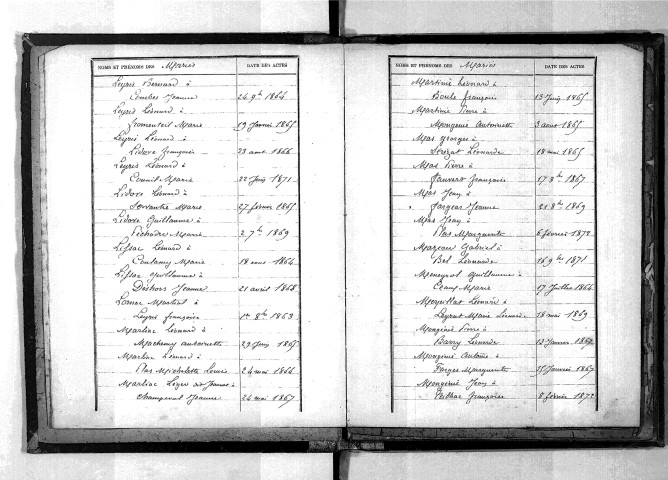 NOMS ET PRÉNOMS DES Mariés DATE DES ACTES
Leyris Bernard à
Combes Jeanne 24 9bre 1864
Leyris Léonard à
Fromenteil Marie 19 Janvier 1865
Leyris Léonard à
Lidove Françoise 23 aout 1866
Leyris Léonard à
Marie 22 Juin 1871
Lidove Léonard à
Marie 27 février 1865
Lidove Guillaume à
Péchadre Marie 2 7bre 1869
Lissac Léonard à
Coulamy Marie 18 aout 1864
Lissac Guillaume à
Deshors Jeanne 21 avril 1868
Martial à
Leyris françoise 1er 8bre 1863
Marliac Léonard à
antoinette 29 Juin 1865
Marliac Léonard à
Plas Michelette Louise 24 mai 1866
Marliac Léger dit à
Champeval Jeanne 26 mai 1867
NOMS ET PRÉNOMS DES Mariés DATE DES ACTES
Martinie Léonard à
Boule françoise 13 Juin 1865
Martinie Pierre à
Mongénie Antoinette 3 aout 1865
Mas georges à
Léonarde 18 mai 1865
Mas Pierre à
françoise 17 8bre 1867
Mas Jean à
Fargeas Jeanne 21 8bre 1869
Mas Jean à
Plas Marguerite 6 février 1872
Mazeau Gabriel à
Bel Léonarde 16 9bre 1871
Guillaume à
Marie 17 Juillet 1864
Léonard à
Marie Léonarde 18 mai 1869
Mongénie Pierre à
Barry Léonarde 13 Janvier
Mongénie Antoine à
Farges Marguerite 25 Janvier 1867
Mongénie Jean à
françoise 8 février 1872